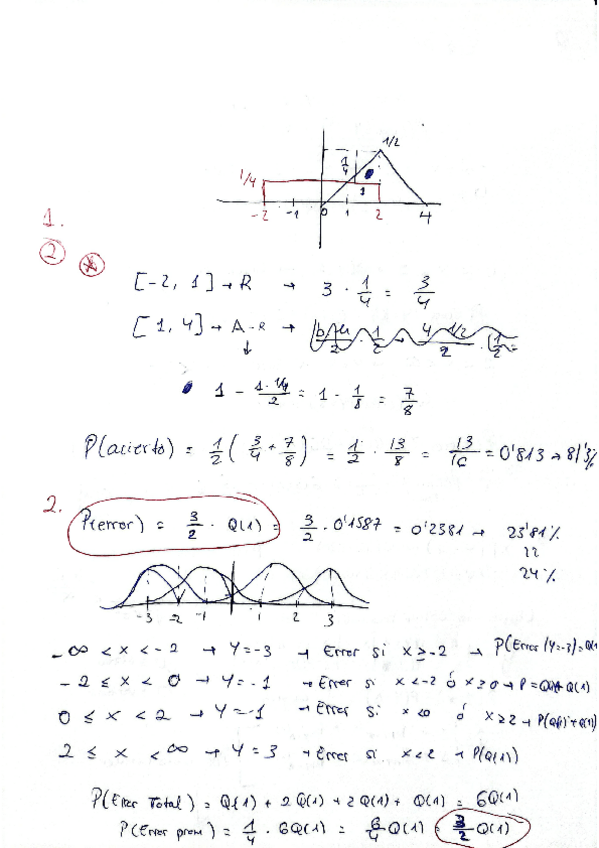 1/2
1/4
1/4
1
-2 -1 0 1 2 4
1.
2
[-2, 1] → R → 3 · 1/4 = 3/4
[1, 4] → A-R →
1 - (1·1/4)/2 = 1 - 1/8 = 7/8
P(acierto) = 1/2 (3/4 + 7/8) = 1/2 · 13/8 = 13/16 = 0'813 → 81'3%
2.
P(error) = 3/2 · Q(1) = 3/2 · 0'1587 = 0'2381 → 23'81%
24%
-3 -2 -1 1 2 3
-∞ < x < -2 → Y=-3 → Error si x ≥ -2 → P(Error/Y=-3)=Q(1)
-2 ≤ x < 0 → Y=-1 → Error si x < -2 ó x ≥ 0 → P = Q(1)+Q(1)
0 ≤ x < 2 → Y=-1 → Error si x<0 ó x ≥ 2 → P(Q(1)+Q(1))
2 ≤ x < ∞ → Y=3 → Error si x<2 → P(Q(1))
P(Error Total) = Q(1) + 2Q(1) + 2Q(1) + Q(1) = 6Q(1)
P(Error prom) = 1/4 · 6Q(1) = 6/4 Q(1) = 3/2 Q(1)